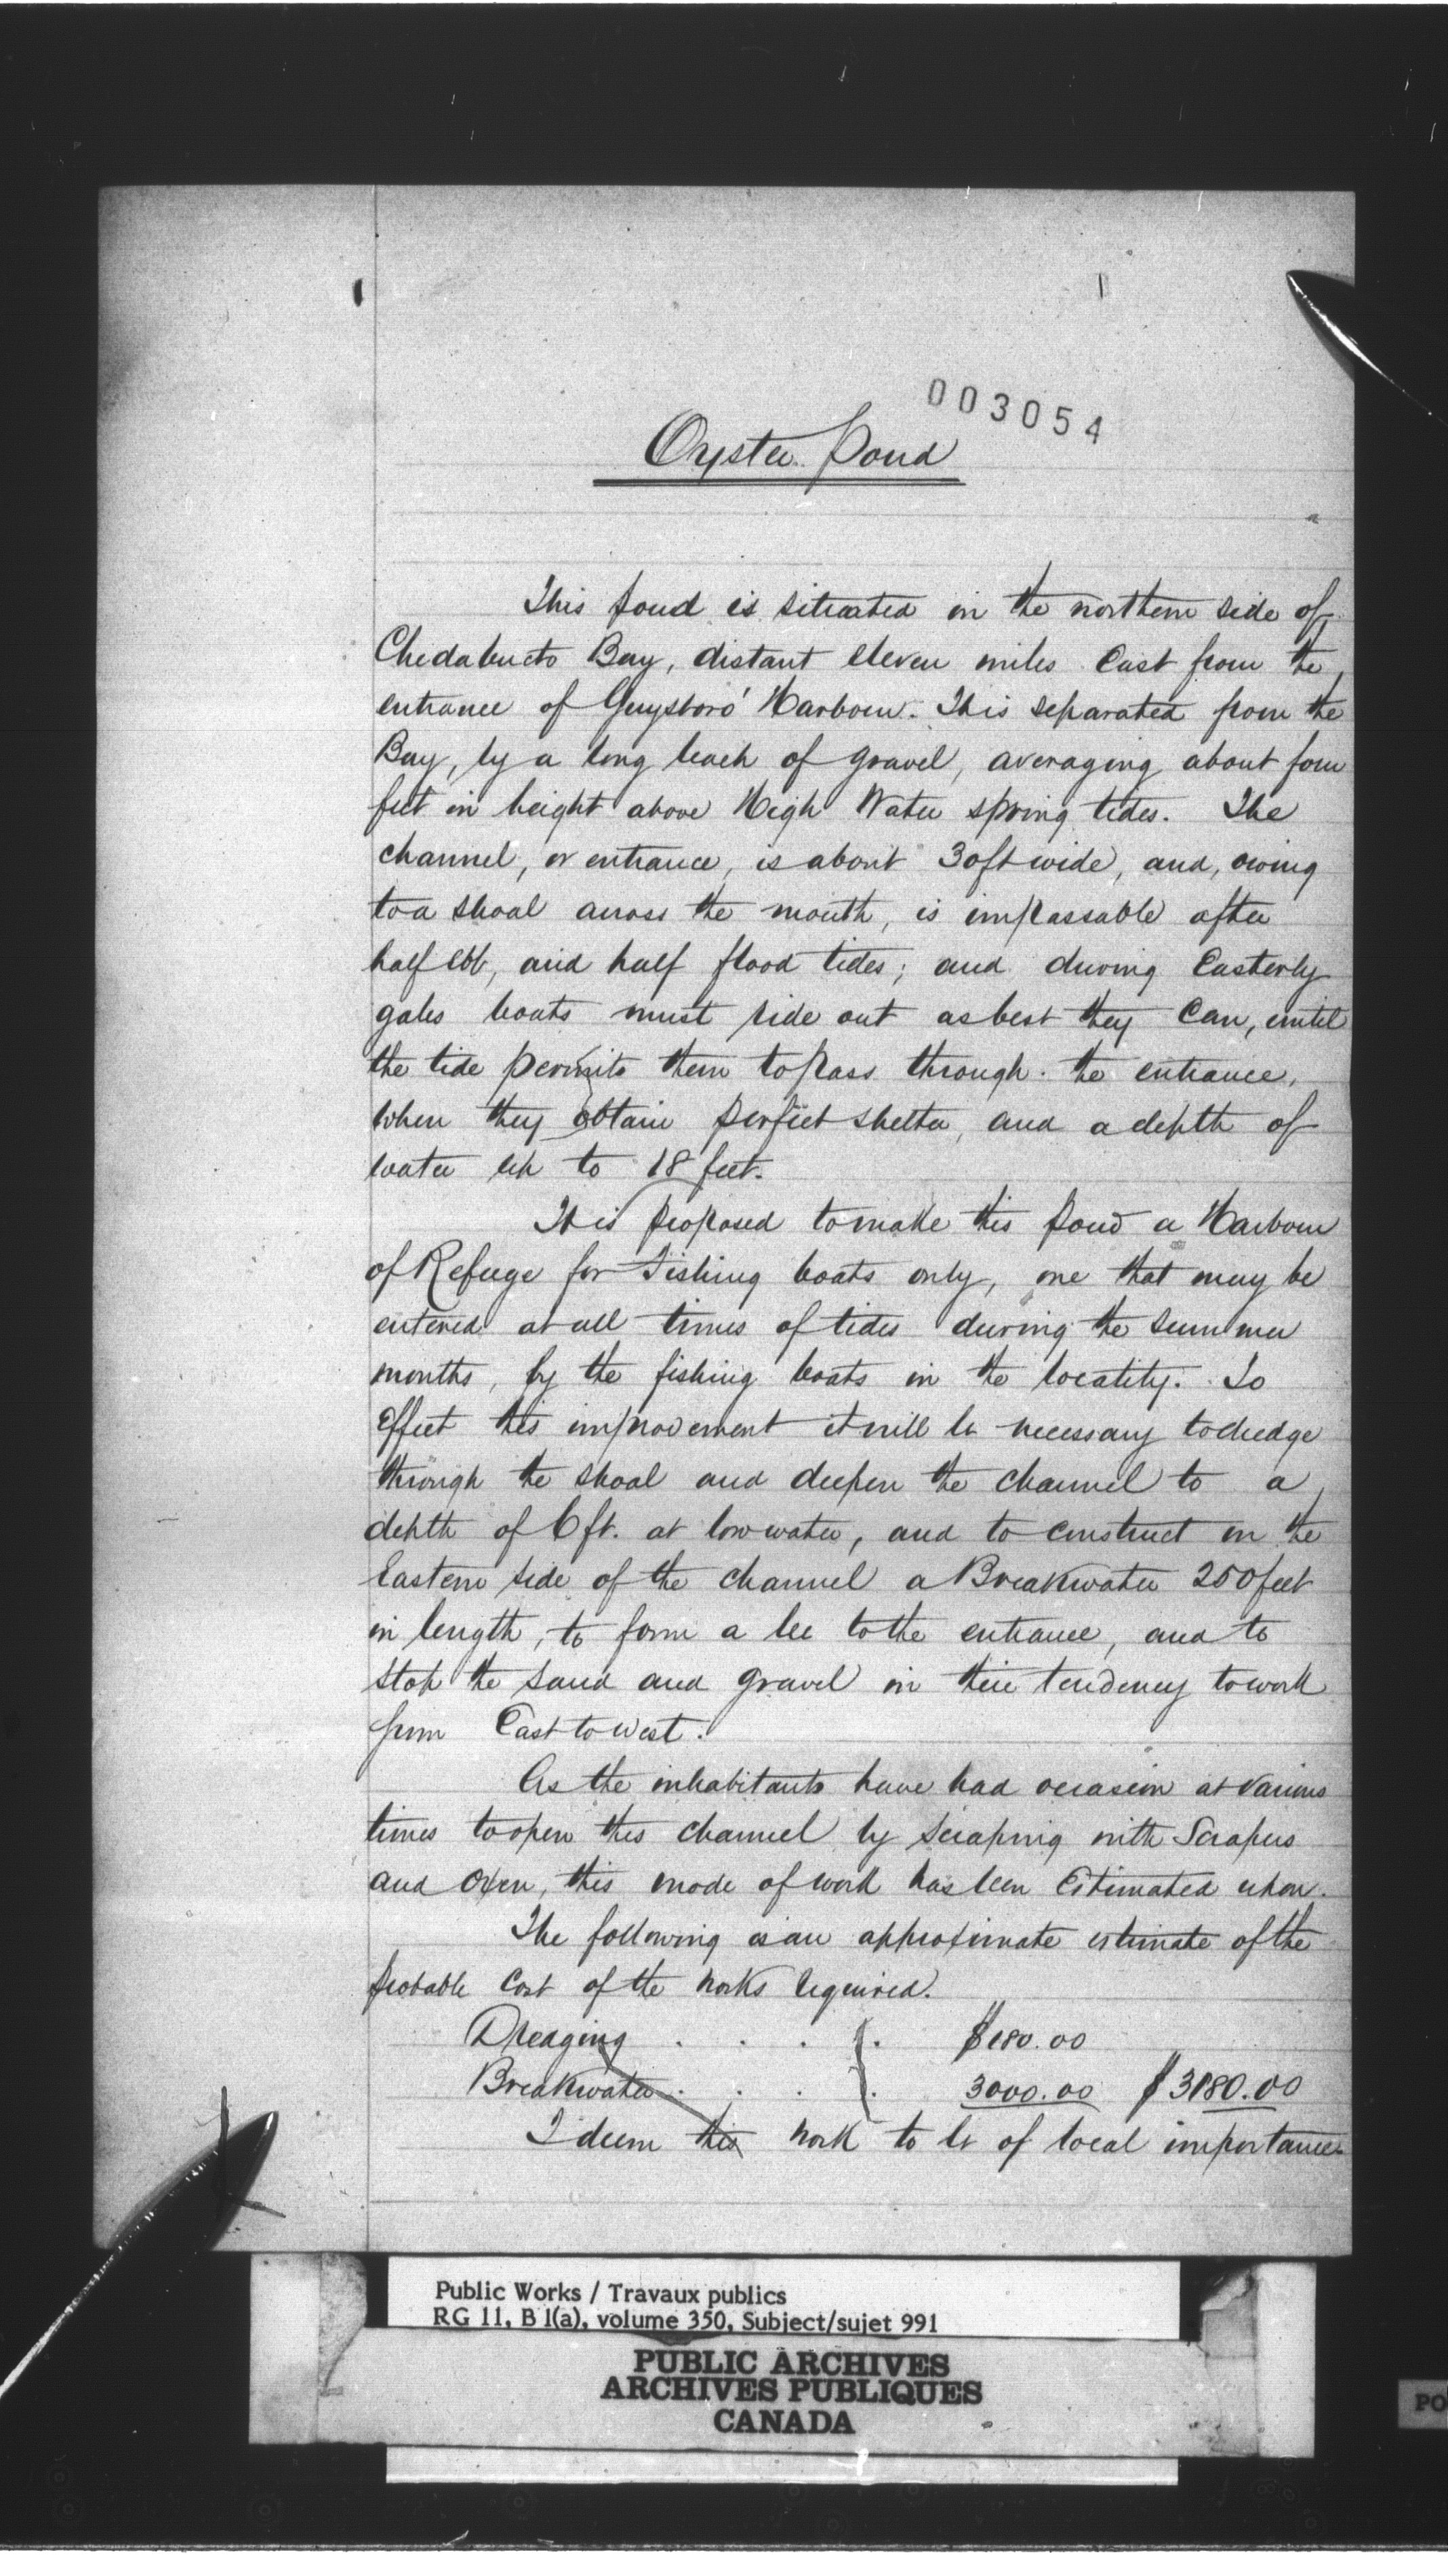 003054
Oyster Pond
This pond is situated on the northern side of
Chedabucto Bay, distant eleven miles East from the
entrance of Guysboro' Harbour. It is separated from the
Bay, by a long beach of gravel, averaging about four
feet in height above High Water spring tides. The
channel, or entrance, is about 30ft wide, and, owing
to a shoal across the mouth, is impassable after
half ebb, and half flood tides; and during Easterly
gales boats must ride out as best they can, until
the tide permits them to pass through the entrance,
when they obtain perfect shelter, and a depth of
water up to 18 feet.
It is proposed to make this pond a Harbour
of Refuge for Fishing boats only, one that may be
entered at all times of tides during the summer
months, by the fishing boats in the locality. To
effect this improvement it will be necessary to dredge
through the shoal and deepen the channel to a
depth of 6 ft. at low water, and to construct on the
Eastern side of the channel a Breakwater 250 feet
in length, to form a lee to the entrance, and to
stop the sand and gravel in their tendency to work
from East to West.
As the inhabitants have had occasion at various
times to open this channel by scraping with Scrapers
and Oxen, this mode of work has been Estimated upon.
The following is an approximate estimate of the
probable cost of the works required.
Dredging . . . . $180.00
Breakwater . . . . 3000.00 $3180.00
I deem this work to be of local importance.
Public Works / Travaux publics
RG 11, B 1(a), volume 350, Subject/sujet 991
PUBLIC ARCHIVES
ARCHIVES PUBLIQUES
CANADA
PO